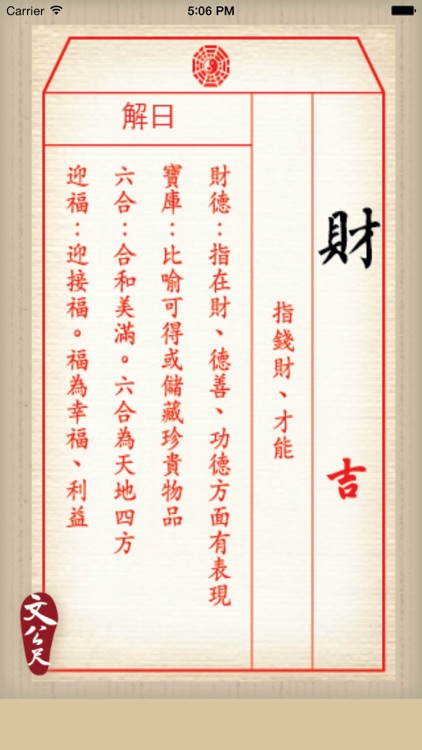 Carrier
5:06 PM
財
吉
指錢財、才能
解日
財德：指在財、德善、功德方面有表現
寶庫：比喻可得或儲藏珍貴物品
六合：合和美滿。六合為天地四方
迎福：迎接福。福為幸福、利益
文公尺